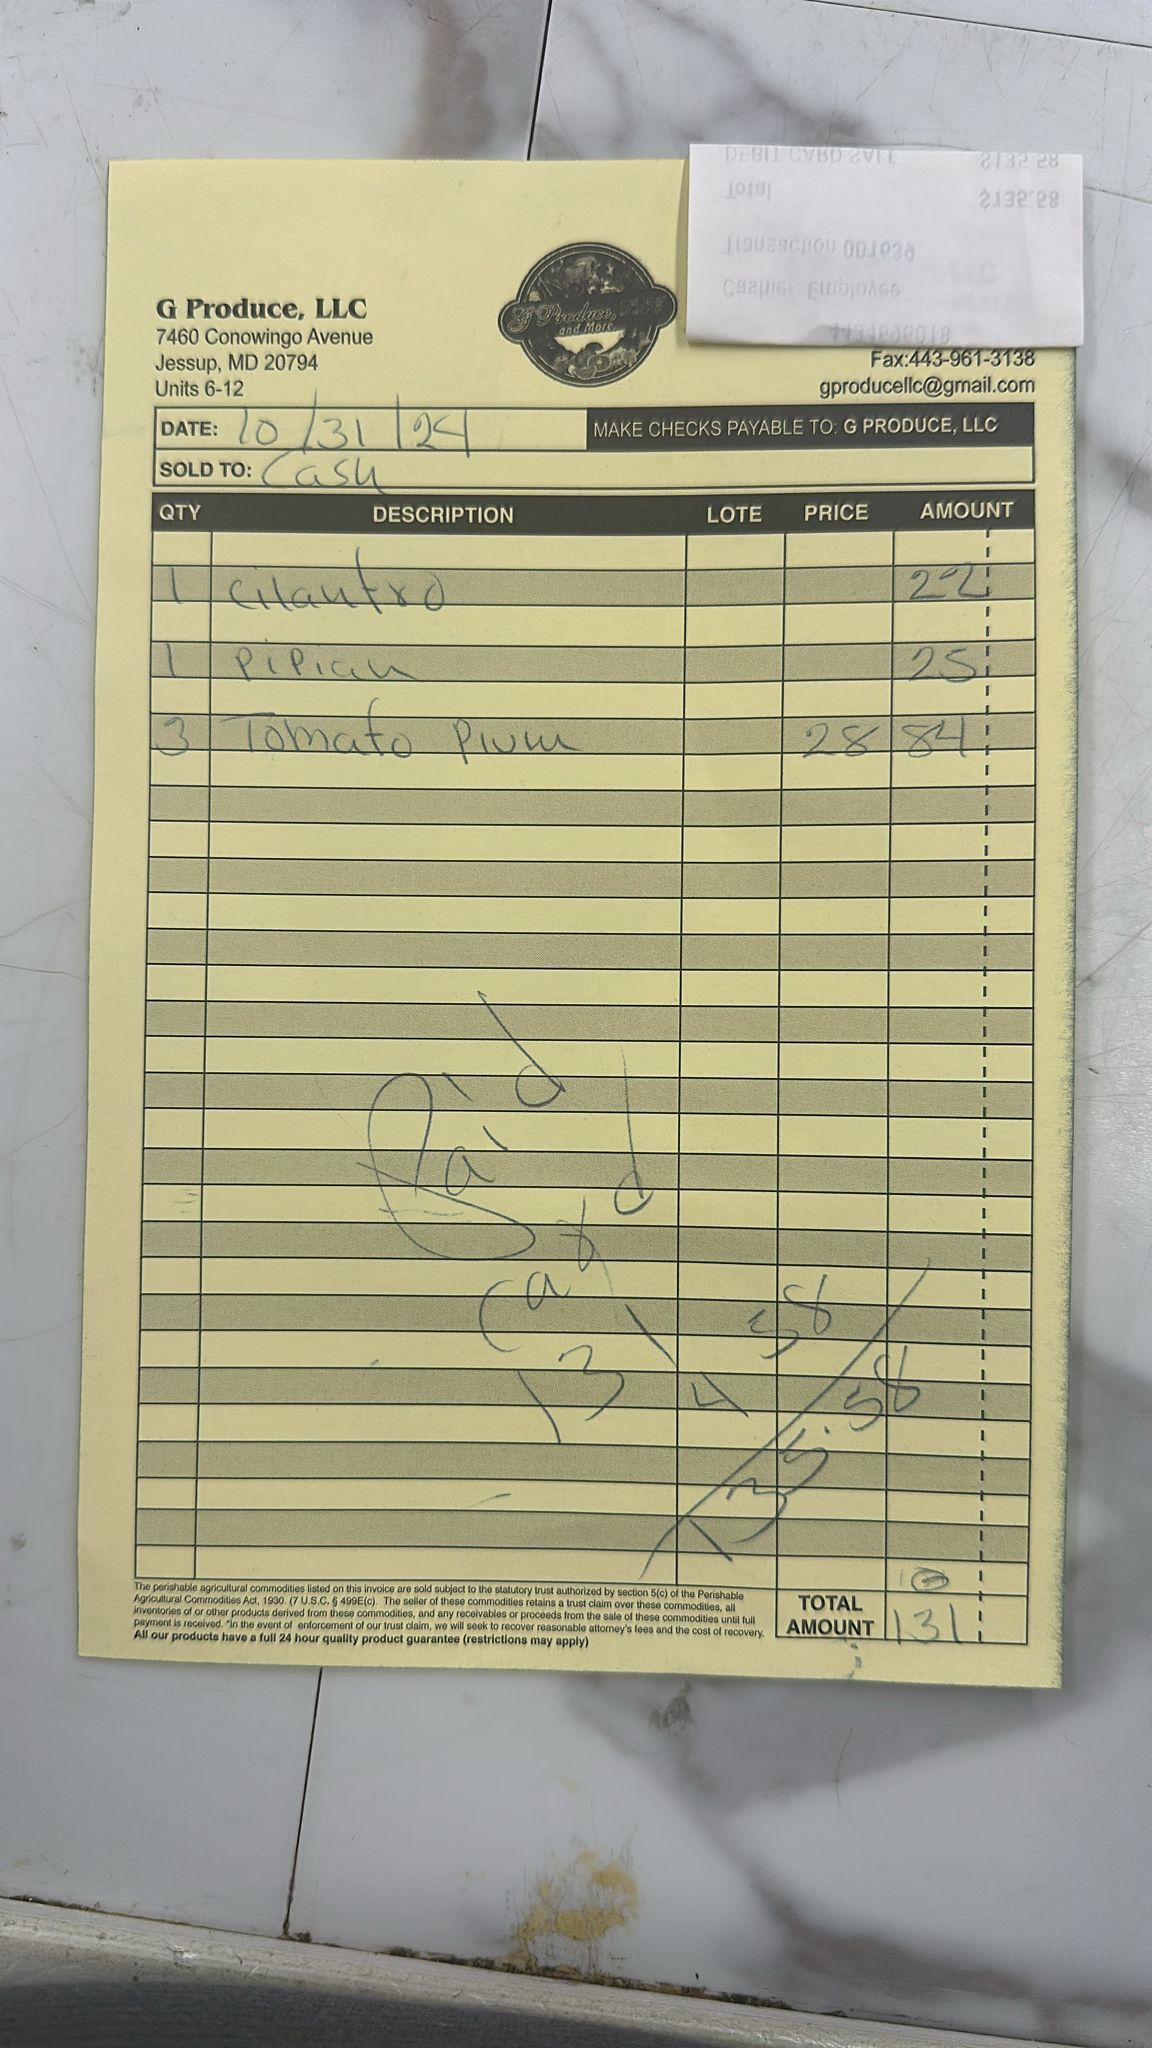 DEBIT CARD SALE $135.58
Total $135.58
Transaction 001639
Cashier Employee
4434696018
G Produce, LLC
7460 Conowingo Avenue
Jessup, MD 20794
Units 6-12
G Produce, LLC
and More
Fax:443-961-3138
gproducellc@gmail.com
DATE: 10/31/24 MAKE CHECKS PAYABLE TO: G PRODUCE, LLC
SOLD TO: Cash
QTY DESCRIPTION LOTE PRICE AMOUNT
1 cilantro 22
1 Pipian 25
3 Tomato Plum 28 84
Paid
Card
134.58
135.58
The perishable agricultural commodities listed on this invoice are sold subject to the statutory trust authorized by section 5(c) of the Perishable
Agricultural Commodities Act, 1930. (7 U.S.C. § 499E(c). The seller of these commodities retains a trust claim over these commodities, all
inventories of or other products derived from these commodities, and any receivables or proceeds from the sale of these commodities until full
payment is received. "In the event of enforcement of our trust claim, we will seek to recover reasonable attorney's fees and the cost of recovery.
All our products have a full 24 hour quality product guarantee (restrictions may apply)
TOTAL AMOUNT 131